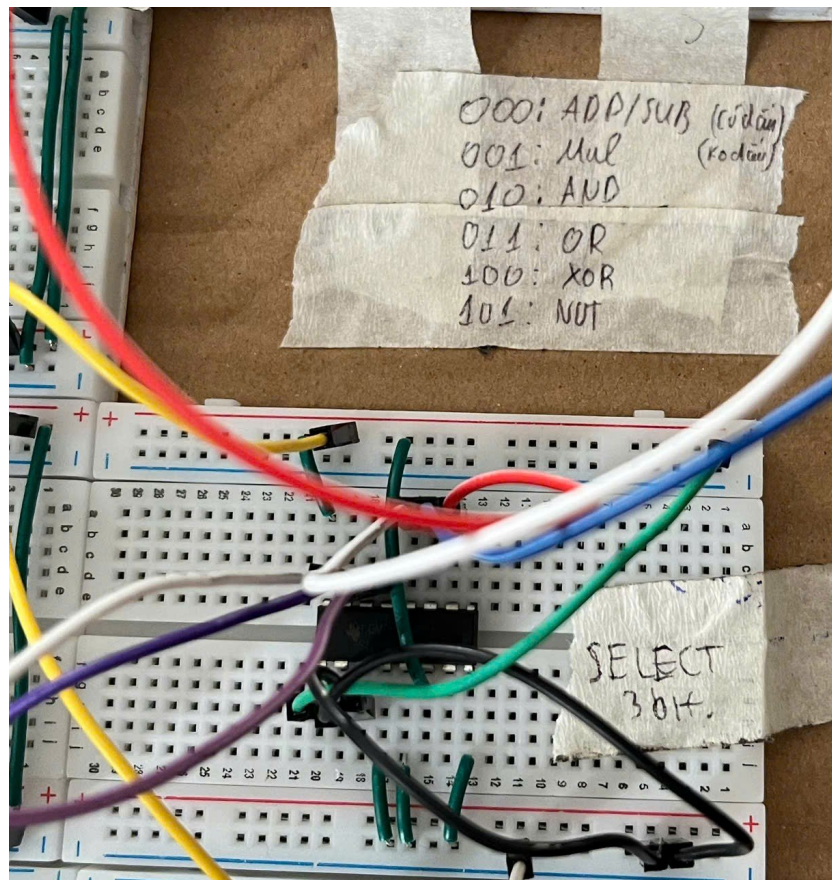 000: ADD/SUB (có dấu)
001: Mul (ko dấu)
010: AND
011: OR
100: XOR
101: NOT
SELECT
3 bit.